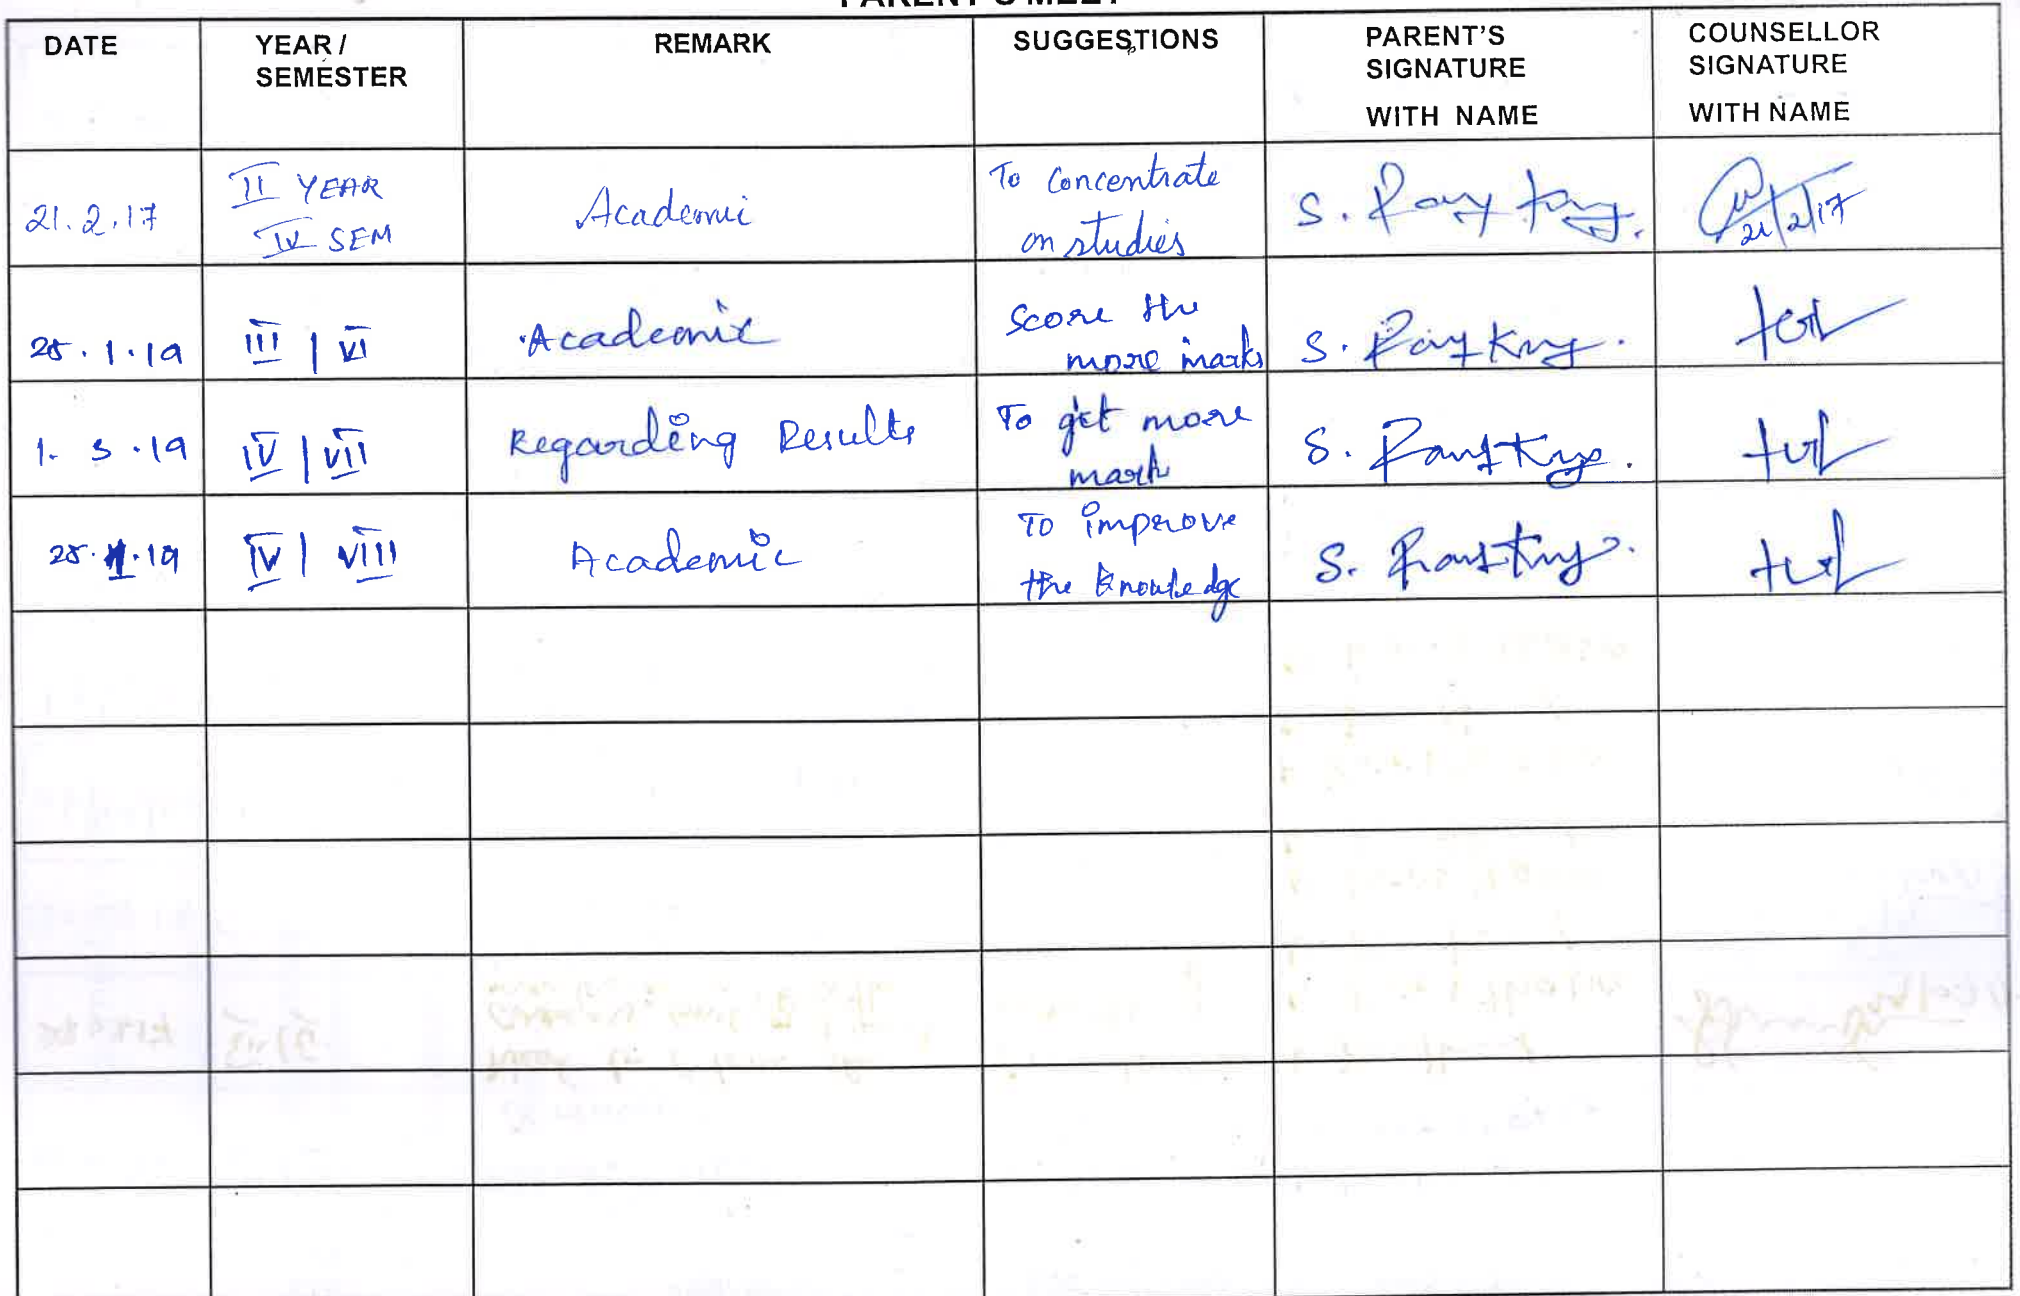 PARENT'S MEET
DATE
YEAR /
SEMESTER
REMARK
SUGGESTIONS
PARENT'S
SIGNATURE
WITH NAME
COUNSELLOR
SIGNATURE
WITH NAME
21.2.17
II YEAR
IV SEM
Academic
To Concentrate
on studies
S.
21/2/17
25.1.19
III | VI
Academic
Score the
more marks
S.
1. 3 .19
IV | VII
Regarding Results
To get more
mark
S.
25. .19
IV | VIII
Academic
To improve
the knowledge
S.